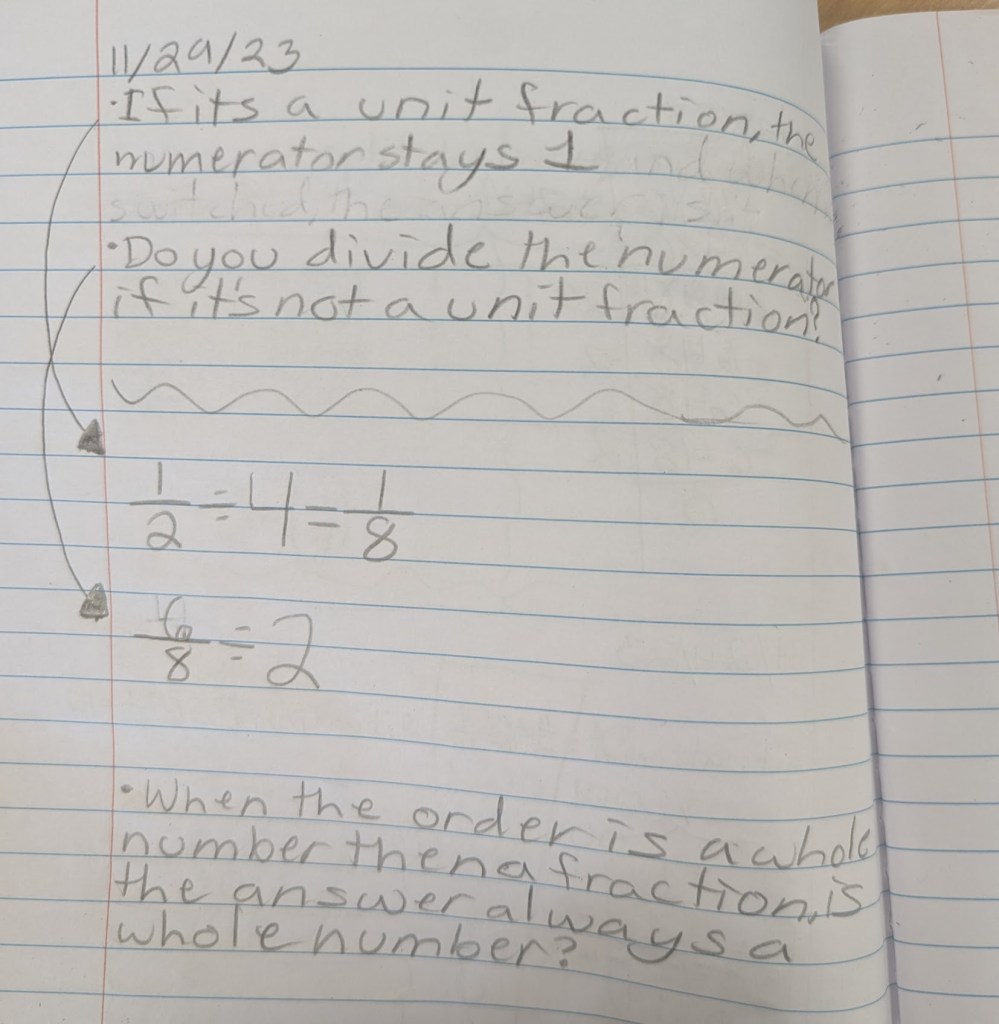 11/29/23
·If its a unit fraction, the
numerator stays 1
·Do you divide the numerator
if it's not a unit fraction?
1/2 ÷ 4 = 1/8
6/8 ÷ 2
·When the order is a whole
number then a fraction, is
the answer always a
whole number?